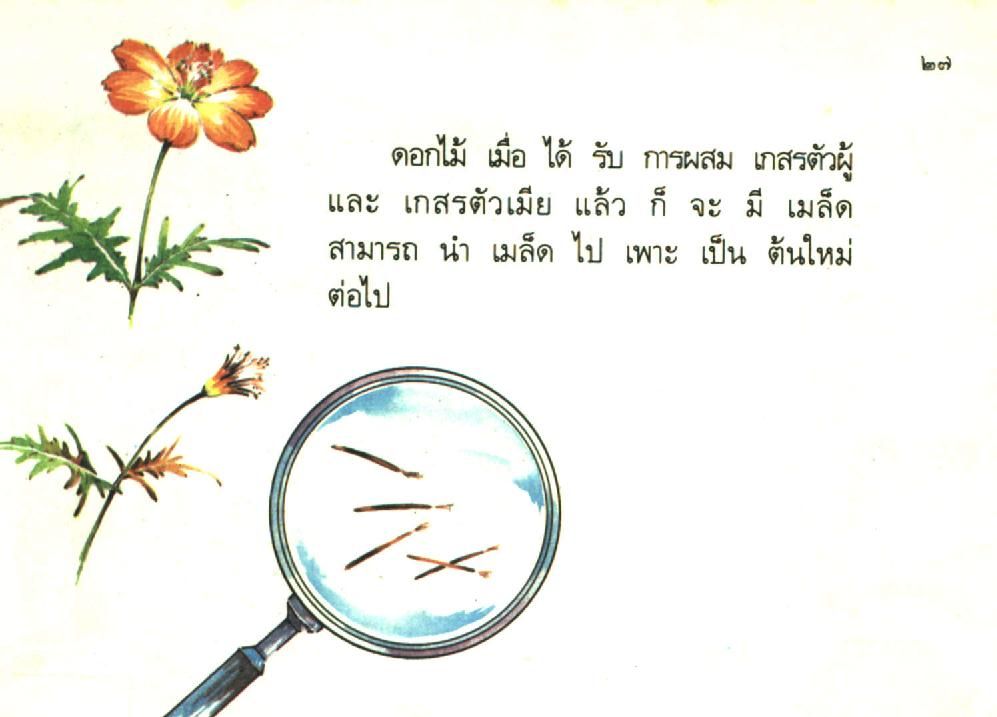 ๒๗
ดอกไม้ เมื่อ ได้ รับ การผสม เกสรตัวผู้
และ เกสรตัวเมีย แล้ว ก็ จะ มี เมล็ด
สามารถ นำ เมล็ด ไป เพาะ เป็น ต้นใหม่
ต่อไป